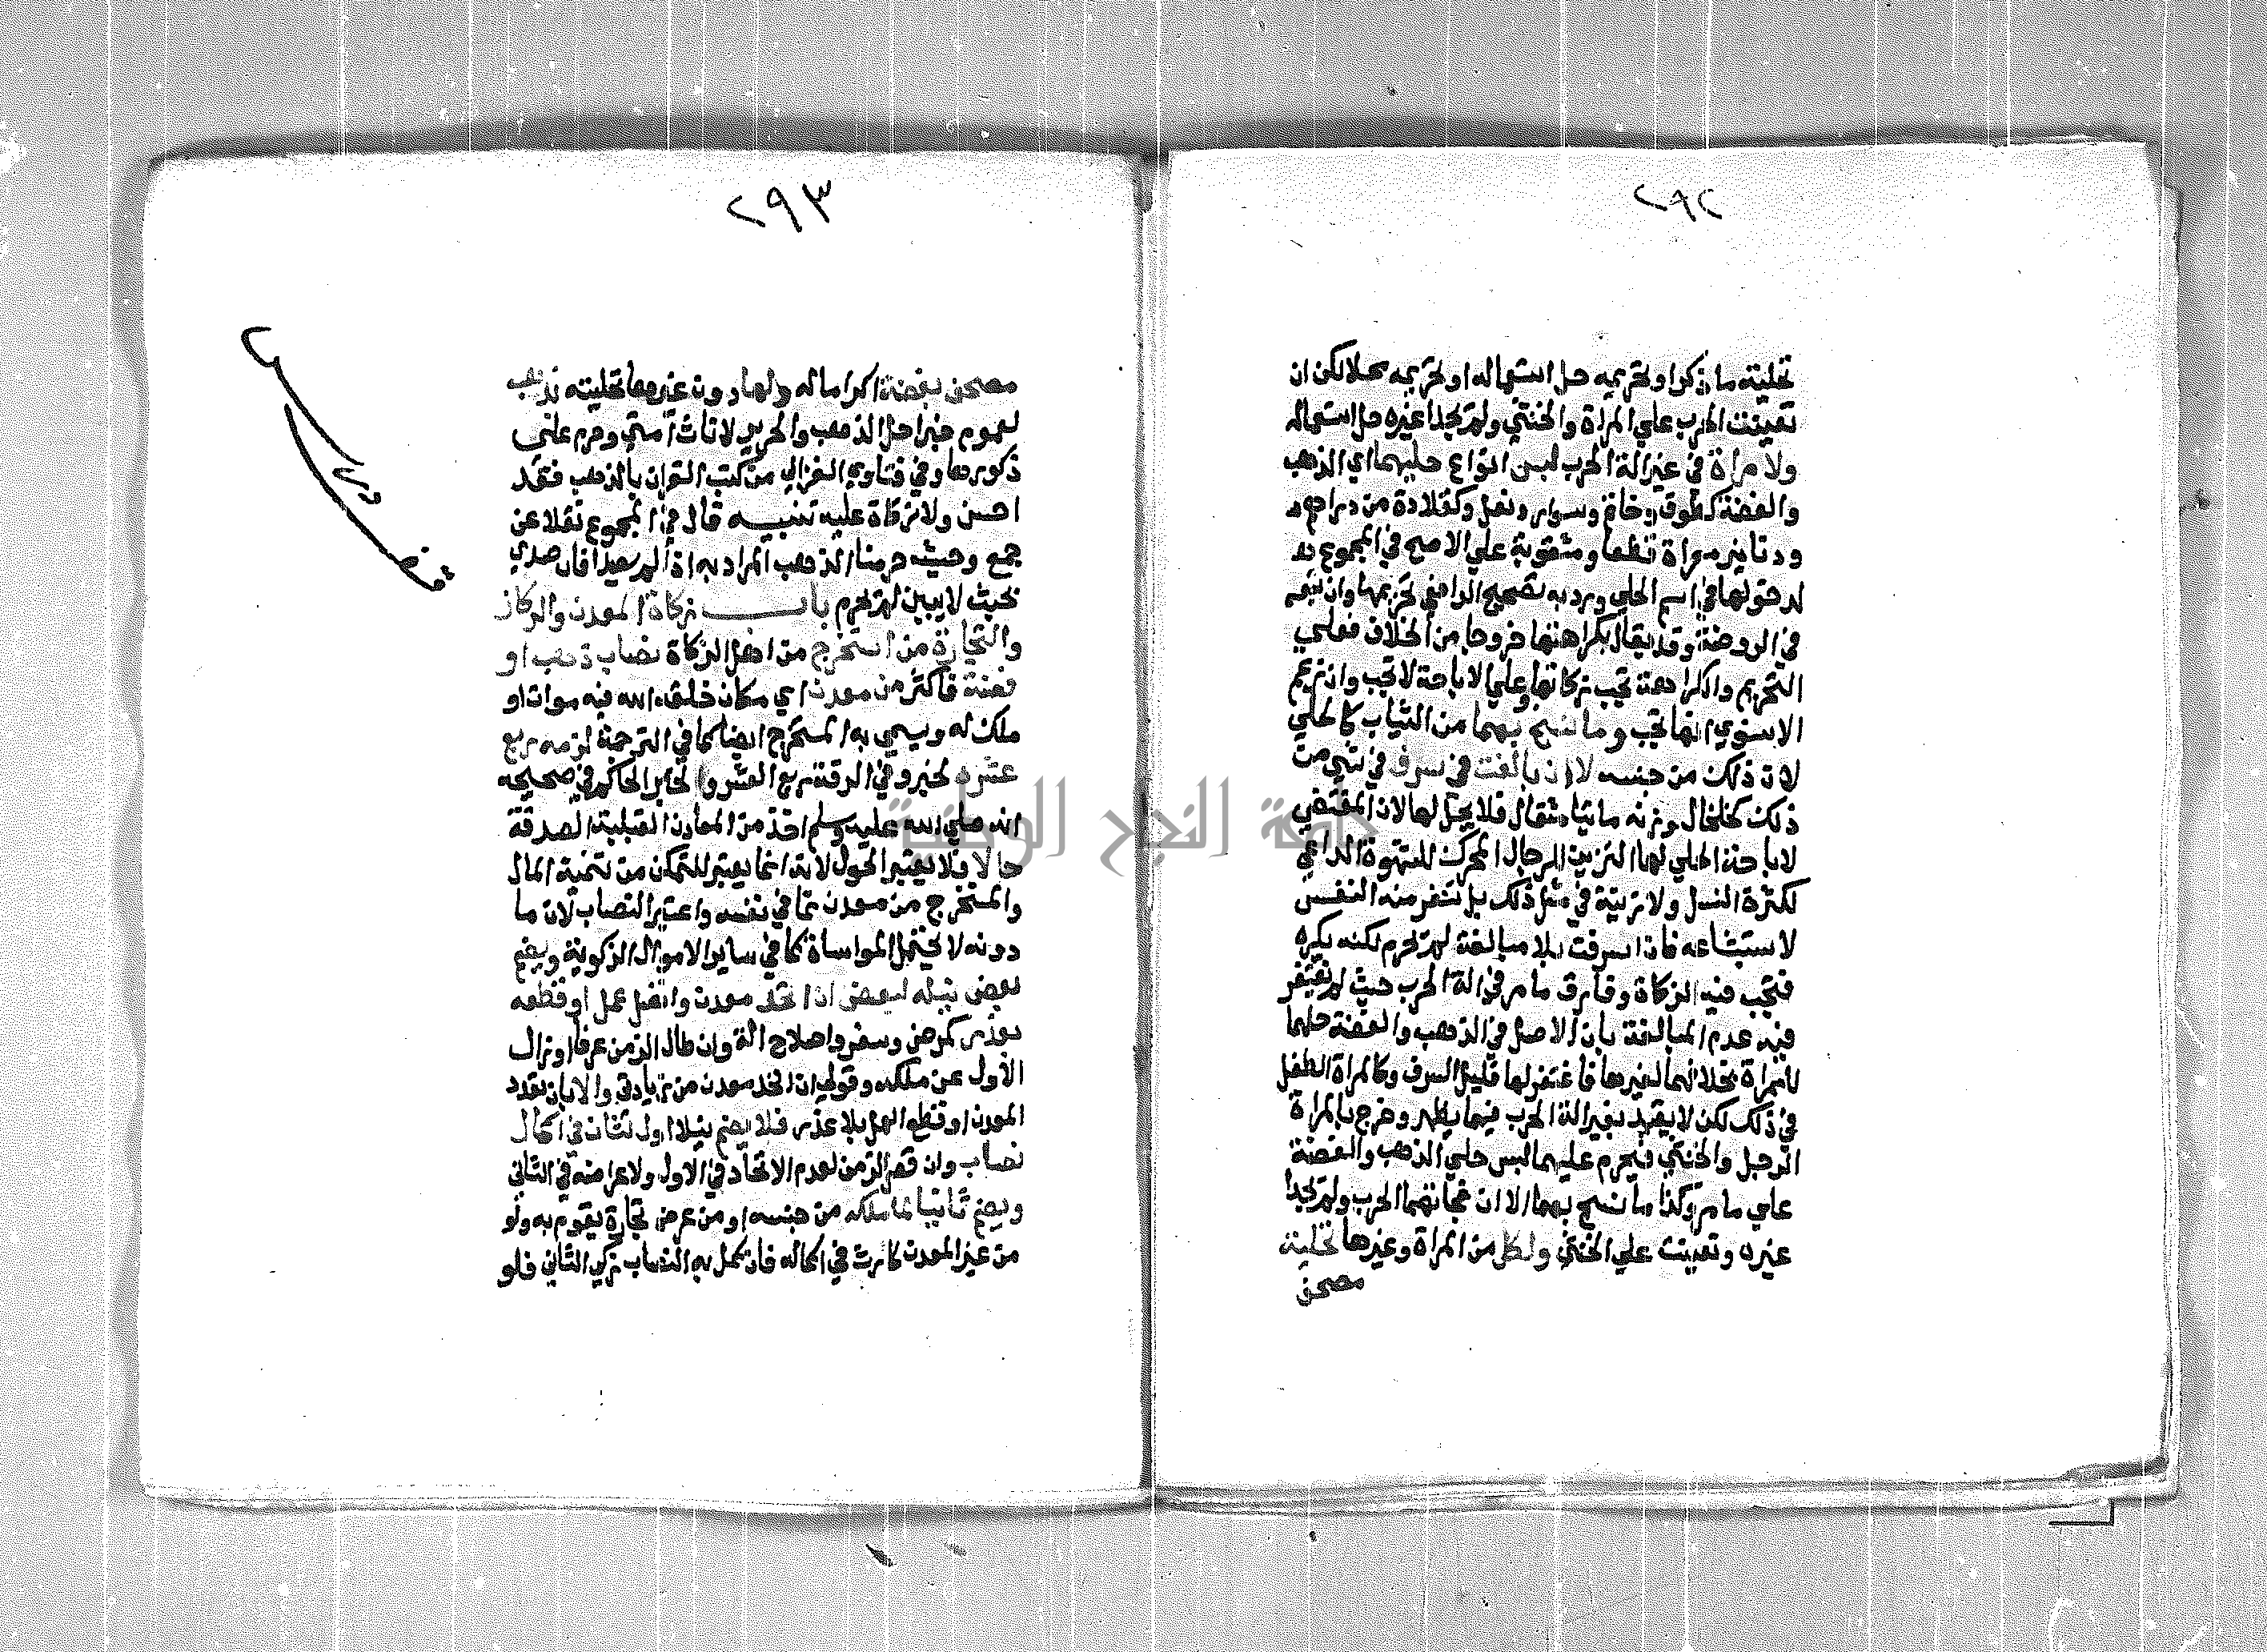 ٢٩٢
تحليته ما ذكر او تحريمه حل استعماله او تحريمه محلا لكن ان
تعينت الحرب علي المراة والخنثي ولم يجدا غيره حل استعماله
ولامراة في غير الة الحرب لبس انواع حليهما اي الذهب
والفضة كطوق وخاتم وسوار ونعل وكقلادة من دراهم
ودنانير معراة قطعا ومثقوبة علي الاصح في المجموع
لدخولها في اسم الحلي ورد به تصحيح الرافعي تحريمها وان تبعه
في الروضة وقد يقال بكراهتها خروجا من الخلاف فعلي
التحريم والكراهة تجب زكاتها وعلي الاباحة لا تجب وان زعم
الاسنوي انها تجب وما نسج بهما من الثياب كالحلي
لان ذلك من جنسه لا ان بالغت في سرف في شي من
ذلك كخلخال وزنه مائتا مثقال فلا يحل لها لان المقتضي
لاباحة الحلي لها التزين للرجال المحرك للشهوة الداعي
لكثرة النسل ولا زينة في مثل ذلك بل تنفر منه النفس
لاستبشاعه فان اسرفت بلا مبالغة لم يحرم لكنه يكره
فتجب فيه الزكاة وفارق ما مر في الة الحرب حيث لم يغتفر
فيه عدم المبالغة بان الاصل في الذهب والفضة حلهما
لامراة بخلافهما لغيرها فاغتفر لها قليل السرف وكالمراة الطفل
في ذلك لكن لا يقيد بغير الة الحرب فيما يظهر وخرج بالمراة
الرجل والخنثي فيحرم عليهما لبس حلي الذهب والفضة
علي ما مر وكذا ما نسج بهما الا ان فجاتهما الحرب ولم يجدا
غيره وتعينت علي الخنثي ولكل من المراة وغيرها تحلية
مصحف
٢٩٣
مصحف بفضة اكراما له ولها دون غيرها تحليته بذهب
لعموم خبر احل الذهب والحرير لاناث امتي وحرم علي
ذكورها وفي فتاوي الغزالي من كتب القران بالذهب فقد
احسن ولا زكاة عليه تنبيه قال في المجموع نقلا عن
جمع وحيث حرمنا الذهب المراد به اذا لم يصدا فان صدي
بحيث لا يبين لم يحرم باب زكاة المعدن والركاز
والتجارة من استخرج من اهل الزكاة نصاب ذهب او
فضة فاكثر من معدن اي مكان خلقه الله فيه موات او
ملك له ويسمي به المستخرج ايضا كما في الترجمة لزمه ربع
عشره لخبر وفي الرقة ربع العشر ولخبر الحاكم في صحيحه
انه صلي الله عليه وسلم اخذ من المعادن القبلية الصدقة
حالا ولا يعتبر الحول لانه انما يعتبر للتمكن من تنمية المال
والمستخرج من معدن نما في نفسه واعتبر النصاب لان ما
دونه لا يحتمل المواساة كما في ساير الاموال الزكوية ويضم
بعض نيله لبعض ان اتحد معدن واتصل عمل او قطعه
بعذر كمرض وسفر واصلاح الة وان طال الزمن عرفا او زال
الاول عن ملكه وقولي ان اتحد معدن من زيادتي والا بان تعدد
المعدن او قطع العمل بلا عذر فلا يضم نيلا اول لثان في اكمال
نصاب وان قصر الزمن لعدم الاتحاد في الاول ولاعراضه في الثاني
ويضم ثانيا لما ملكه من جنسه او من عرض تجارة يقوم به ولو
من غير المعدن كارث في اكماله فان كمل به النصاب زكي الثاني فلو
جامعة النجاح الوطنية